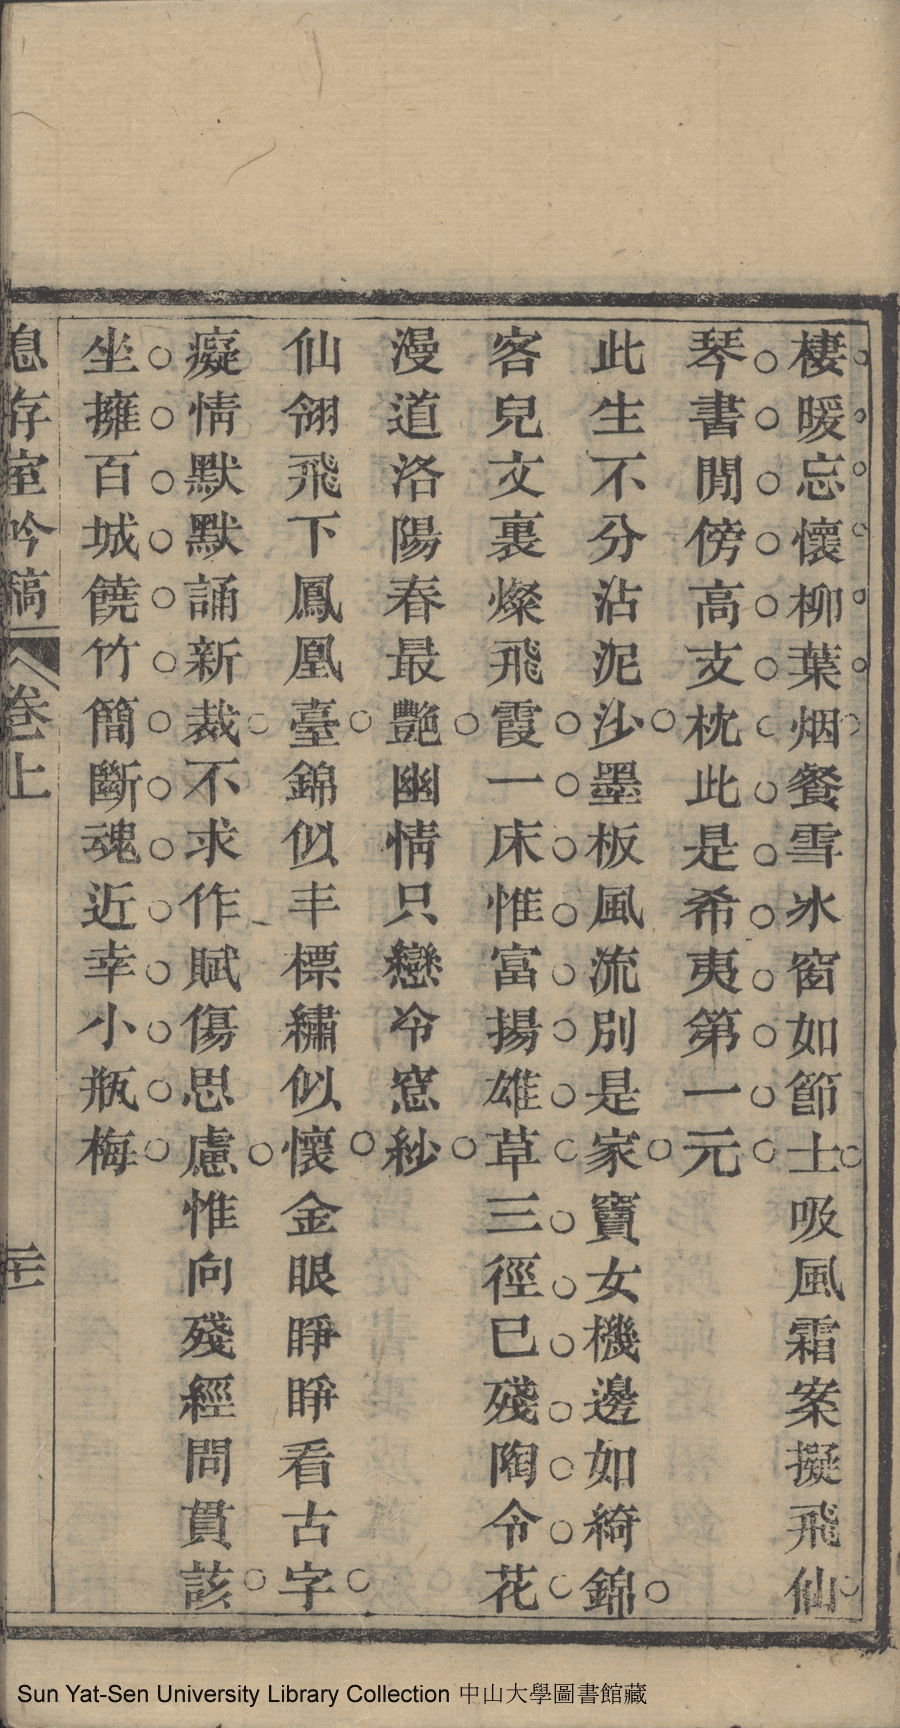 棲暖忘懷柳葉烟餐雪氷窗如節士吸風霜案擬飛仙
琴書閒傍高支枕此是希夷第一元
此生不分沾泥沙墨板風流別是家竇女機邊如綺錦
客兒文裏燦飛霞一床惟富揚雄草三徑已殘陶令花
漫道洛陽春最艷幽情只戀冷窓紗
仙翎飛下鳳凰臺錦似丰標繡似懷金眼睜睜看古字
癡情默默誦新裁不求作賦傷思慮惟向殘經問貫該
坐擁百城饒竹簡斷魂近幸小瓶梅
息存室吟稿 卷上 二十一
Sun Yat-Sen University Library Collection 中山大學圖書館藏